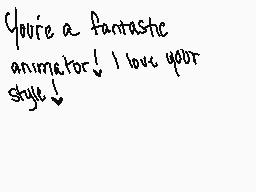 You're a fantastic
animator! I love your
style!